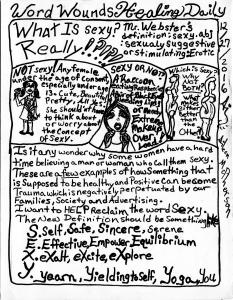 Word Wounds Healing Daily
What Is sexy?
Really!
Mr. Webster's
definition: sexy.adj
: sexualy suggestive
or stimulating: Erotic
NOT sexy! Any female
the age of consent,
especially under age
13. Cute, Beautiful
Pretty. All Yes.
She Should'nt have
to think about
or worry about
the Concept
of Sexy.
SEXY OR NOT?
Extreme
Make
Over
Year
Which is Sexy?
Why
NOT
BOTH?
Other
Is it any wonder why some women have a hard
time believing a man or woman who call them sexy.
These are a few examples of how Something that
is supposed to be healthy and Positive can become
Trauma which is negatively perpetuated by our
Families, Society and Advertising.
I want to HELP Reclaim the word Sexy.
The New Definition should be Something like
S. Self, Safe, Sincere, Serene
E. Effective, Empower, Equilibrium
X. eXalt, eXcite, eXplore
Y. Yearn, Yielding to Self, Yoga, You